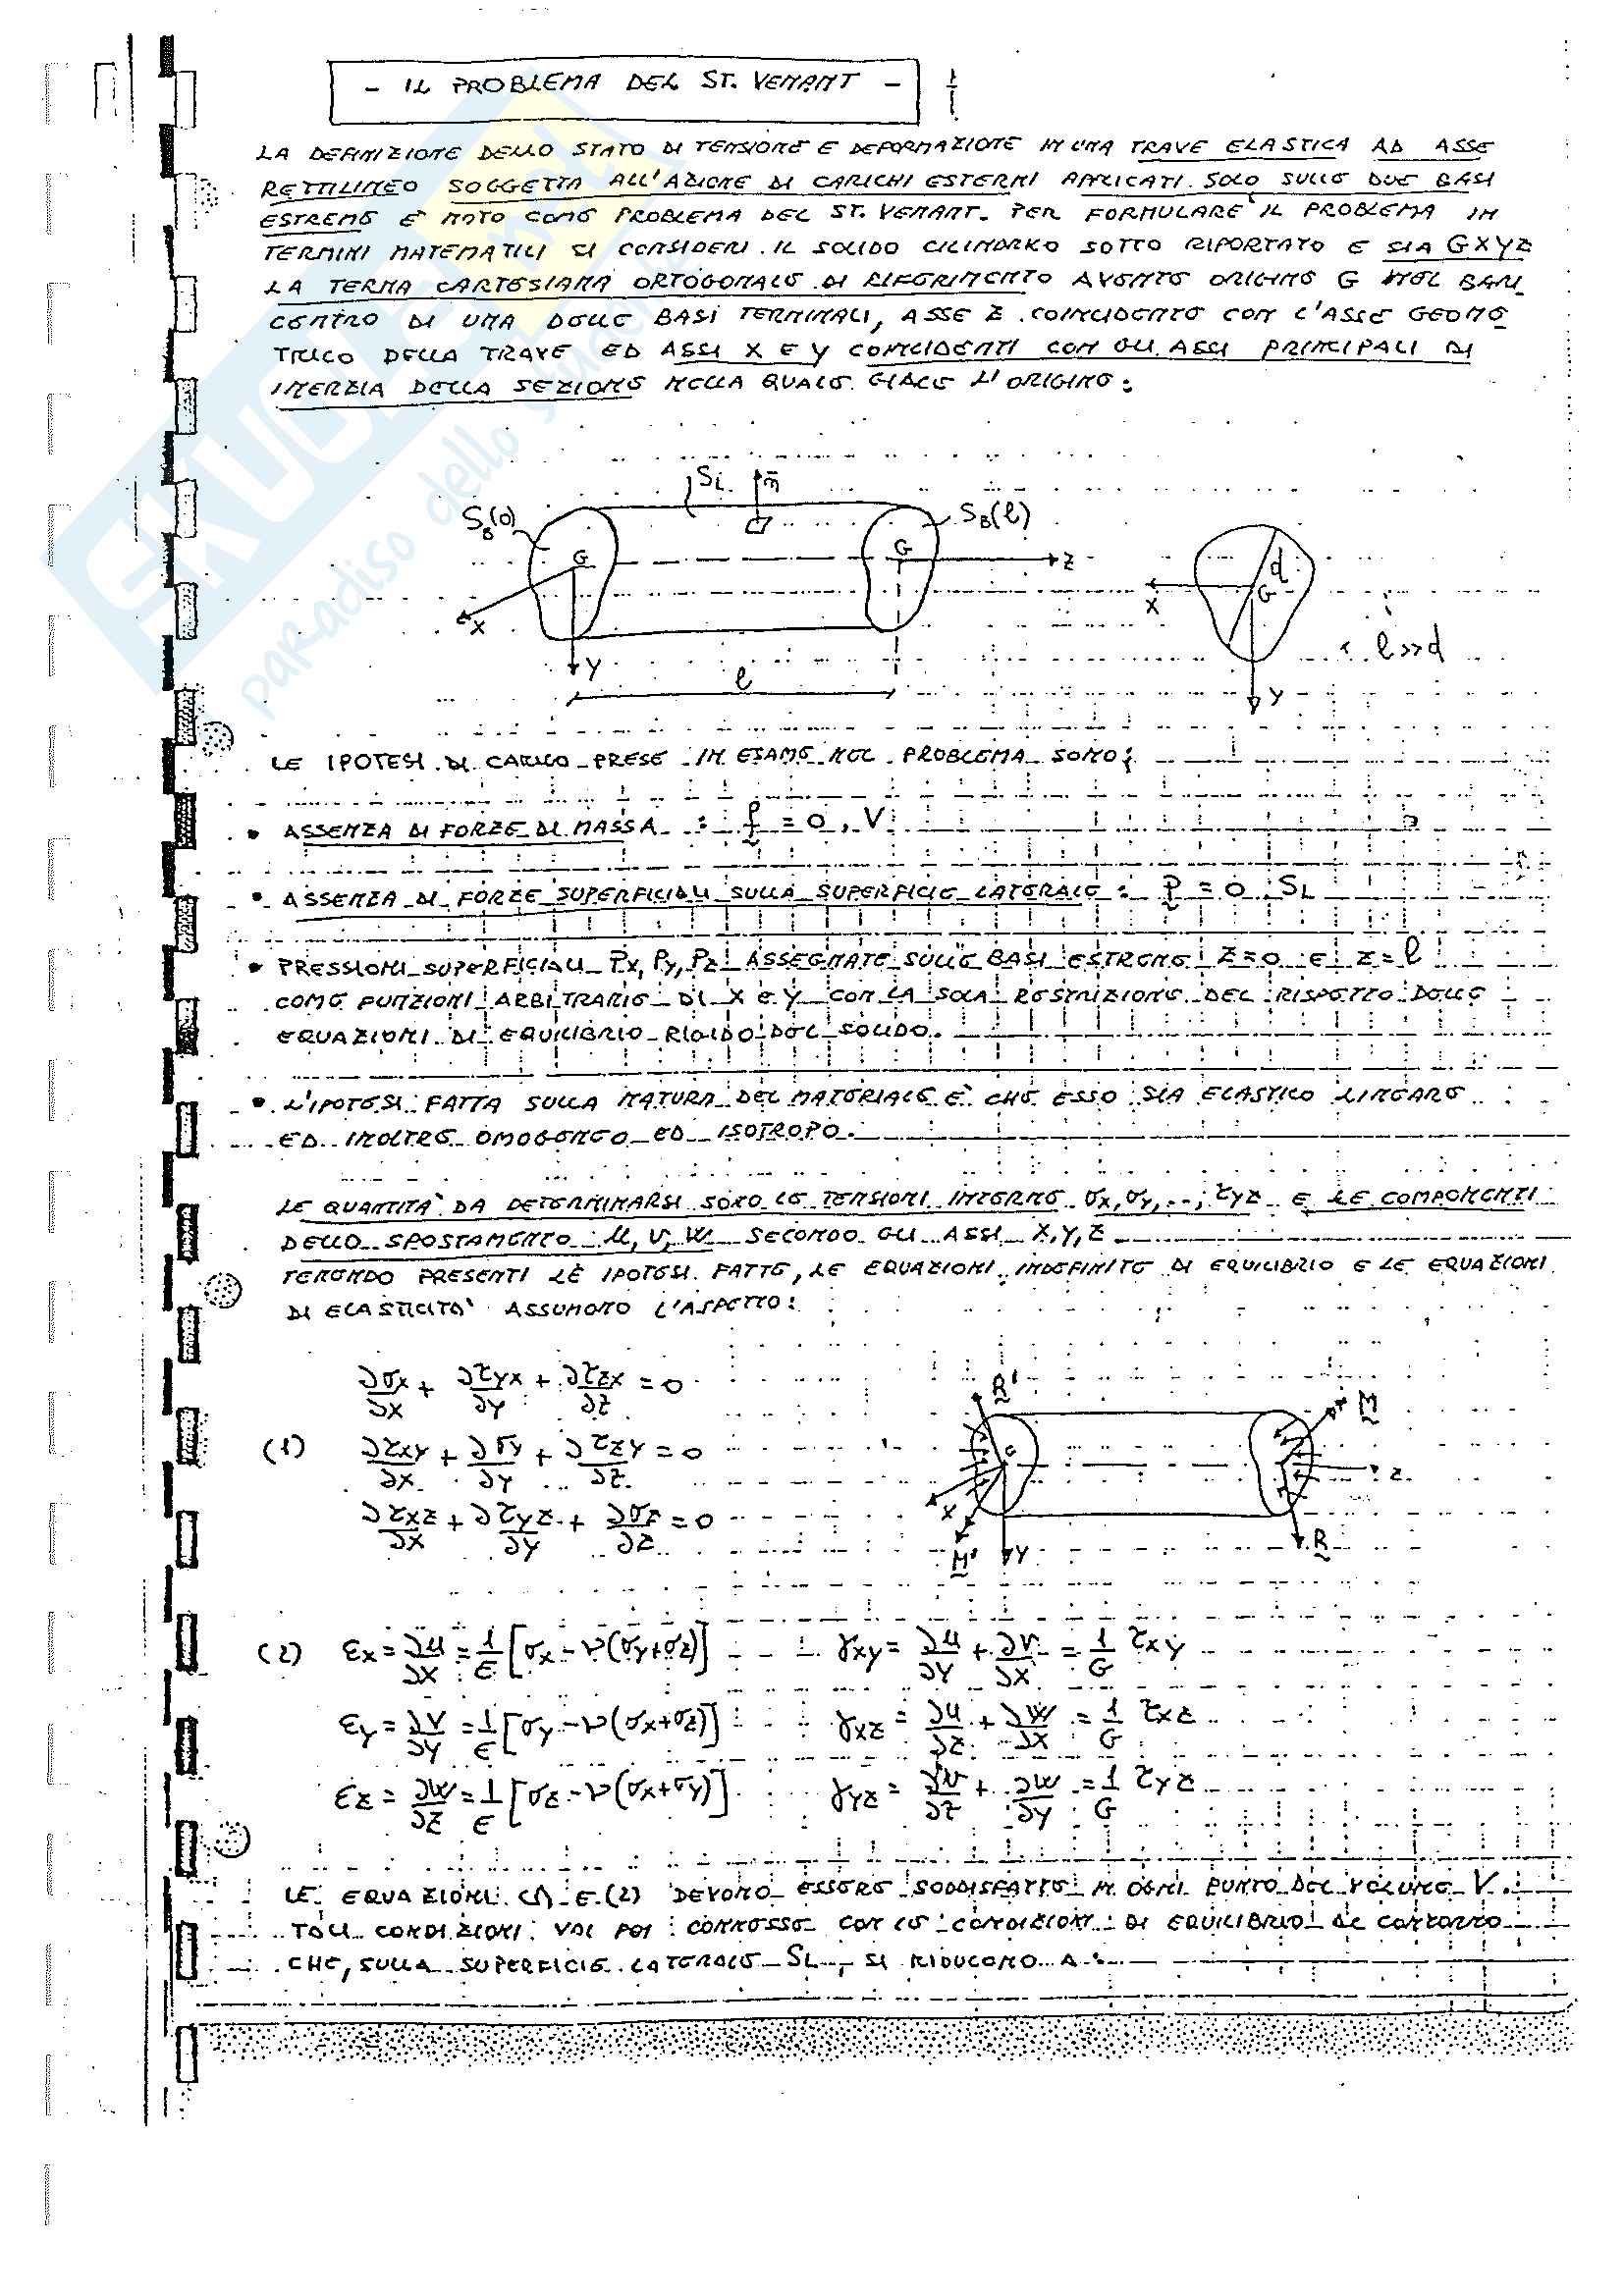 - IL PROBLEMA DEL ST. VENANT -
LA DEFINIZIONE DELLO STATO DI TENSIONE E DEFORMAZIONE IN UNA TRAVE ELASTICA AD ASSE
RETTILINEO SOGGETTA ALL'AZIONE DI CARICHI ESTERNI APPLICATI SOLO SULLE DUE BASI
ESTREME E' NOTO COME PROBLEMA DEL ST. VENANT. PER FORMULARE IL PROBLEMA IN
TERMINI MATEMATICI SI CONSIDERI IL SOLIDO CILINDRICO SOTTO RIPORTATO E SIA GXYZ
LA TERNA CARTESIANA ORTOGONALE DI RIFERIMENTO AVENTE ORIGINE G NEL BARI
CENTRO DI UNA DELLE BASI TERMINALI, ASSE Z COINCIDENTE CON L'ASSE GEOME
TRICO DELLA TRAVE ED ASSI X E Y COINCIDENTI CON GLI ASSI PRINCIPALI DI
INERZIA DELLA SEZIONE NELLA QUALE GIACE L'ORIGINE:
SL n
SB(0) SB(l)
G G Z d
X G
X
Y l l>>d
Y
LE IPOTESI DI CARICO PRESE IN ESAME NEL PROBLEMA SONO:
• ASSENZA DI FORZE DI MASSA : f = 0, V
• ASSENZA DI FORZE SUPERFICIALI SULLA SUPERFICIE LATERALE : P = 0 SL
• PRESSIONI SUPERFICIALI Px, Py, Pz ASSEGNATE SULLE BASI ESTREME Z=0 E Z=l
COME FUNZIONI ARBITRARIE DI X e Y CON LA SOLA RESTRIZIONE DEL RISPETTO DELLE
EQUAZIONI DI EQUILIBRIO RIGIDO DEL SOLIDO.
• L'IPOTESI FATTA SULLA NATURA DEL MATERIALE E' CHE ESSO SIA ELASTICO LINEARE
ED INOLTRE OMOGENEO ED ISOTROPO.
LE QUANTITA' DA DETERMINARSI SONO LE TENSIONI INTERNE σx, σy, .., τyz E LE COMPONENTI
DELLO SPOSTAMENTO u, v, w SECONDO GLI ASSI X, Y, Z
TENENDO PRESENTI LE IPOTESI FATTE, LE EQUAZIONI INDEFINITE DI EQUILIBRIO E LE EQUAZIONI
DI ELASTICITA' ASSUMONO L'ASPETTO:
∂σx/∂x + ∂τyx/∂y + ∂τzx/∂z = 0
(1) ∂τxy/∂x + ∂σy/∂y + ∂τzy/∂z = 0
∂τxz/∂x + ∂τyz/∂y + ∂σz/∂z = 0
R' M
G Z
X
M' Y R
(2) εx = ∂u/∂x = 1/E [σx - ν(σy+σz)] γxy = ∂u/∂y + ∂v/∂x = 1/G τxy
εy = ∂v/∂y = 1/E [σy - ν(σx+σz)] γxz = ∂u/∂z + ∂w/∂x = 1/G τxz
εz = ∂w/∂z = 1/E [σz - ν(σx+σy)] γyz = ∂v/∂z + ∂w/∂y = 1/G τyz
LE EQUAZIONI (1) E (2) DEVONO ESSERE SODDISFATTE IN OGNI PUNTO DEL VOLUME V.
TALI CONDIZIONI VAN POI CONNESSE CON LE CONDIZIONI DI EQUILIBRIO AL CONTORNO
CHE, SULLA SUPERFICIE LATERALE SL, SI RIDUCONO A:
paradiso dello